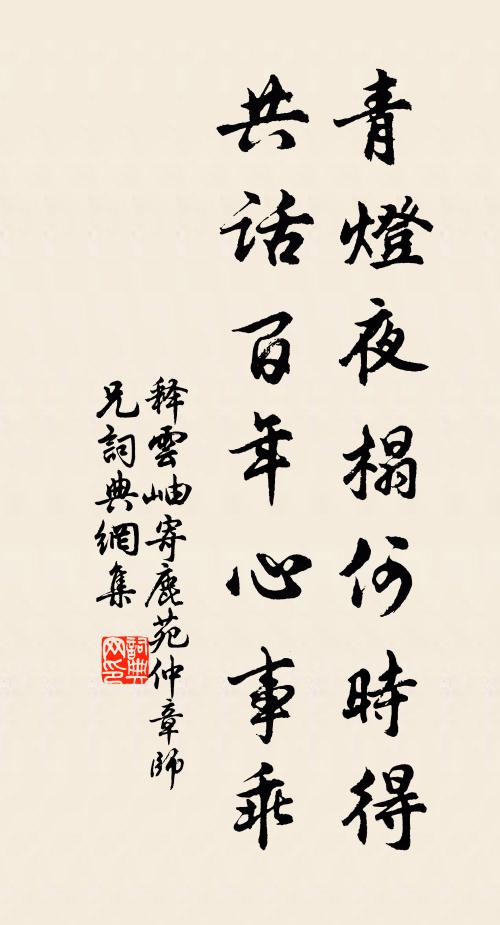 青燈夜榻何時得
共话百年心事乖
释雲岫寄鹿苑仲章師
兄詞典網集
詞典
网印